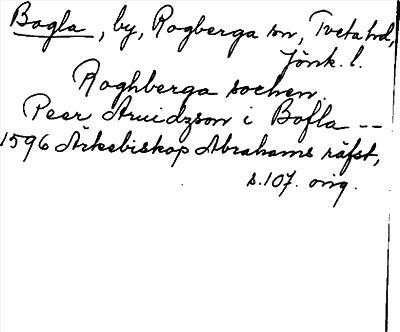 Bogla, by, Rogberga sn, Tveta hd,
Jönk. l.
Roghberga sochen.
Peer Aruidzson i Bofla --
1596 Ärkebiskop Abrahams räfst,
s. 107. orig.